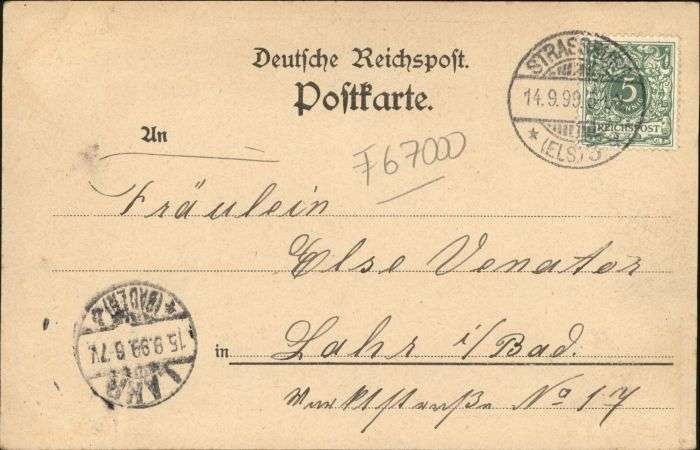 Deutsche Reichspost.
Postkarte.
An
STRASSBURG
14.9.99.
* (ELS) 5
5
REICHSPOST
F67000
Fräulein
Else Venator
in Lahr i/Bad.
Marktstraße No 17
* (BADEN) 2
15.9.99. 6-7V.
LAHR